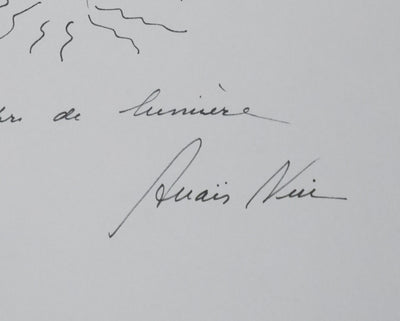 de lumière
Anaïs Nin